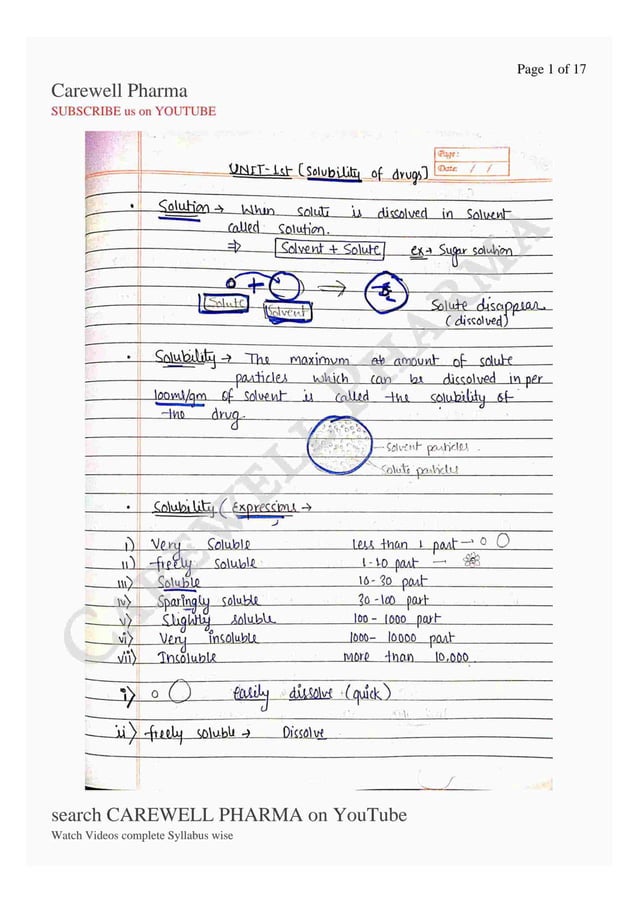 Page 1 of 17
Carewell Pharma
SUBSCRIBE us on YOUTUBE
Page:
Date: / /
UNIT-1st [Solubility of drugs]
• Solution → When solute is dissolved in solvent
called solution.
⇒ Solvent + Solute ex→ Sugar solution
+ ⇒
Solute Solvent
Solute disappear
(dissolved)
• Solubility → The maximum amount of solute
particles which can be dissolved in per
100ml/gm of solvent is called the solubility of
the drug.
solvent particles.
Solute particles
• Solubility (Expressions →
i) Very Soluble less than 1 part →
ii) freely soluble 1-10 part —
iii) Soluble 10-30 part
iv) Sparingly soluble 30-100 part
v) Slightly soluble 100-1000 part
vi) Very insoluble 1000- 10000 part
vii) Insoluble More than 10,000
i) Easily dissolve (quick)
ii) freely soluble → Dissolve
CAREWELL PHARMA
search CAREWELL PHARMA on YouTube
Watch Videos complete Syllabus wise